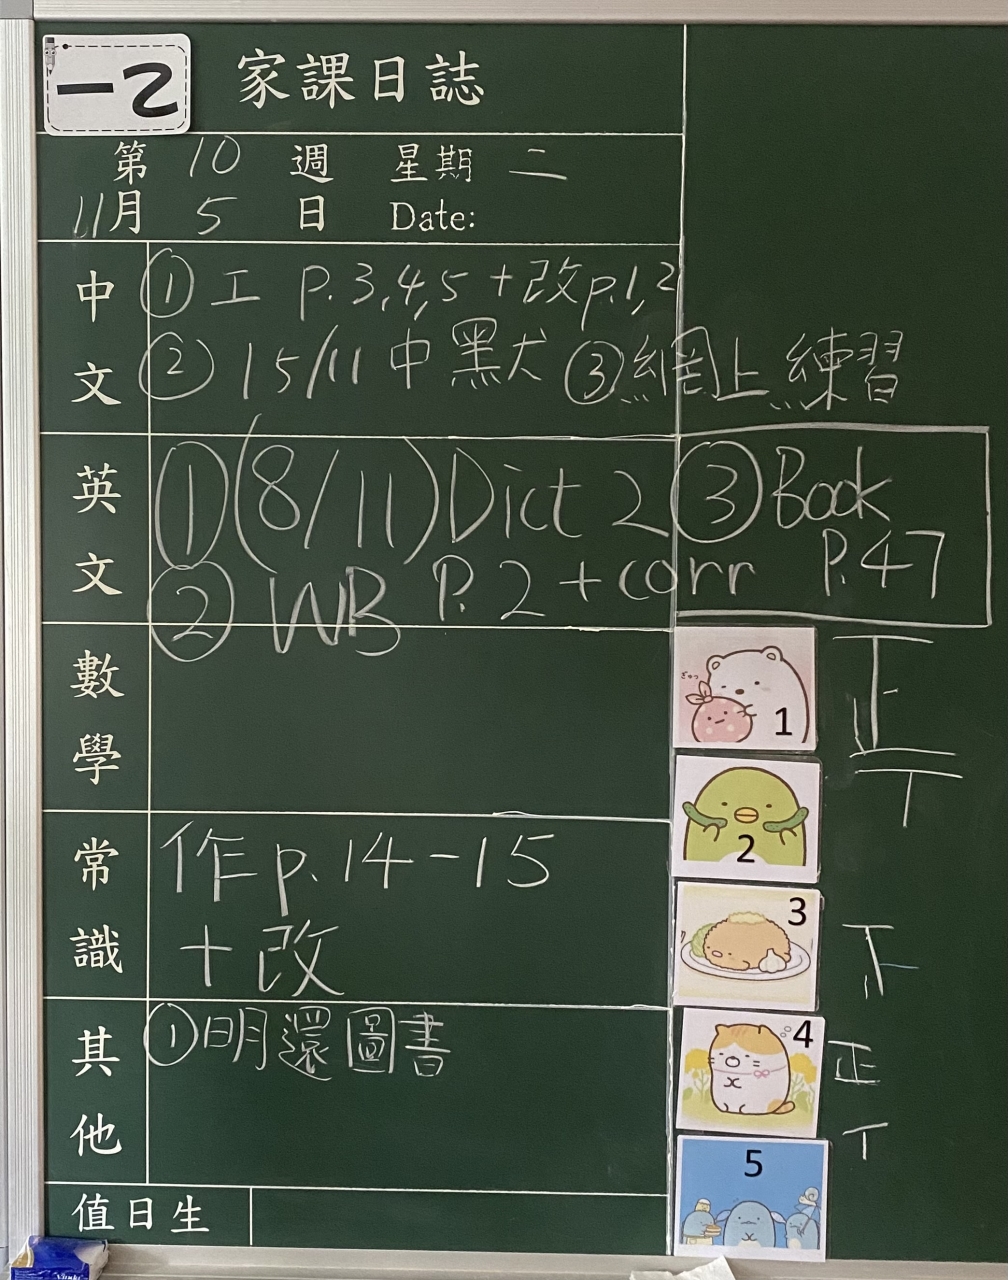 一乙
家課日誌
第 10 週 星期 二
11月 5 日 Date:
中文
① 工 p.3,4,5 +改p.1,2
② 15/11 中默 ③網上練習
英文
① (8/11) Dict 2 ③ Book P.47
② WB P.2 + corr
數學
常識
作 p.14-15
+改
其他
①明還圖書
值日生
ぎゅっ
1
正
一
2
丅
3
下
4
正
5
丅